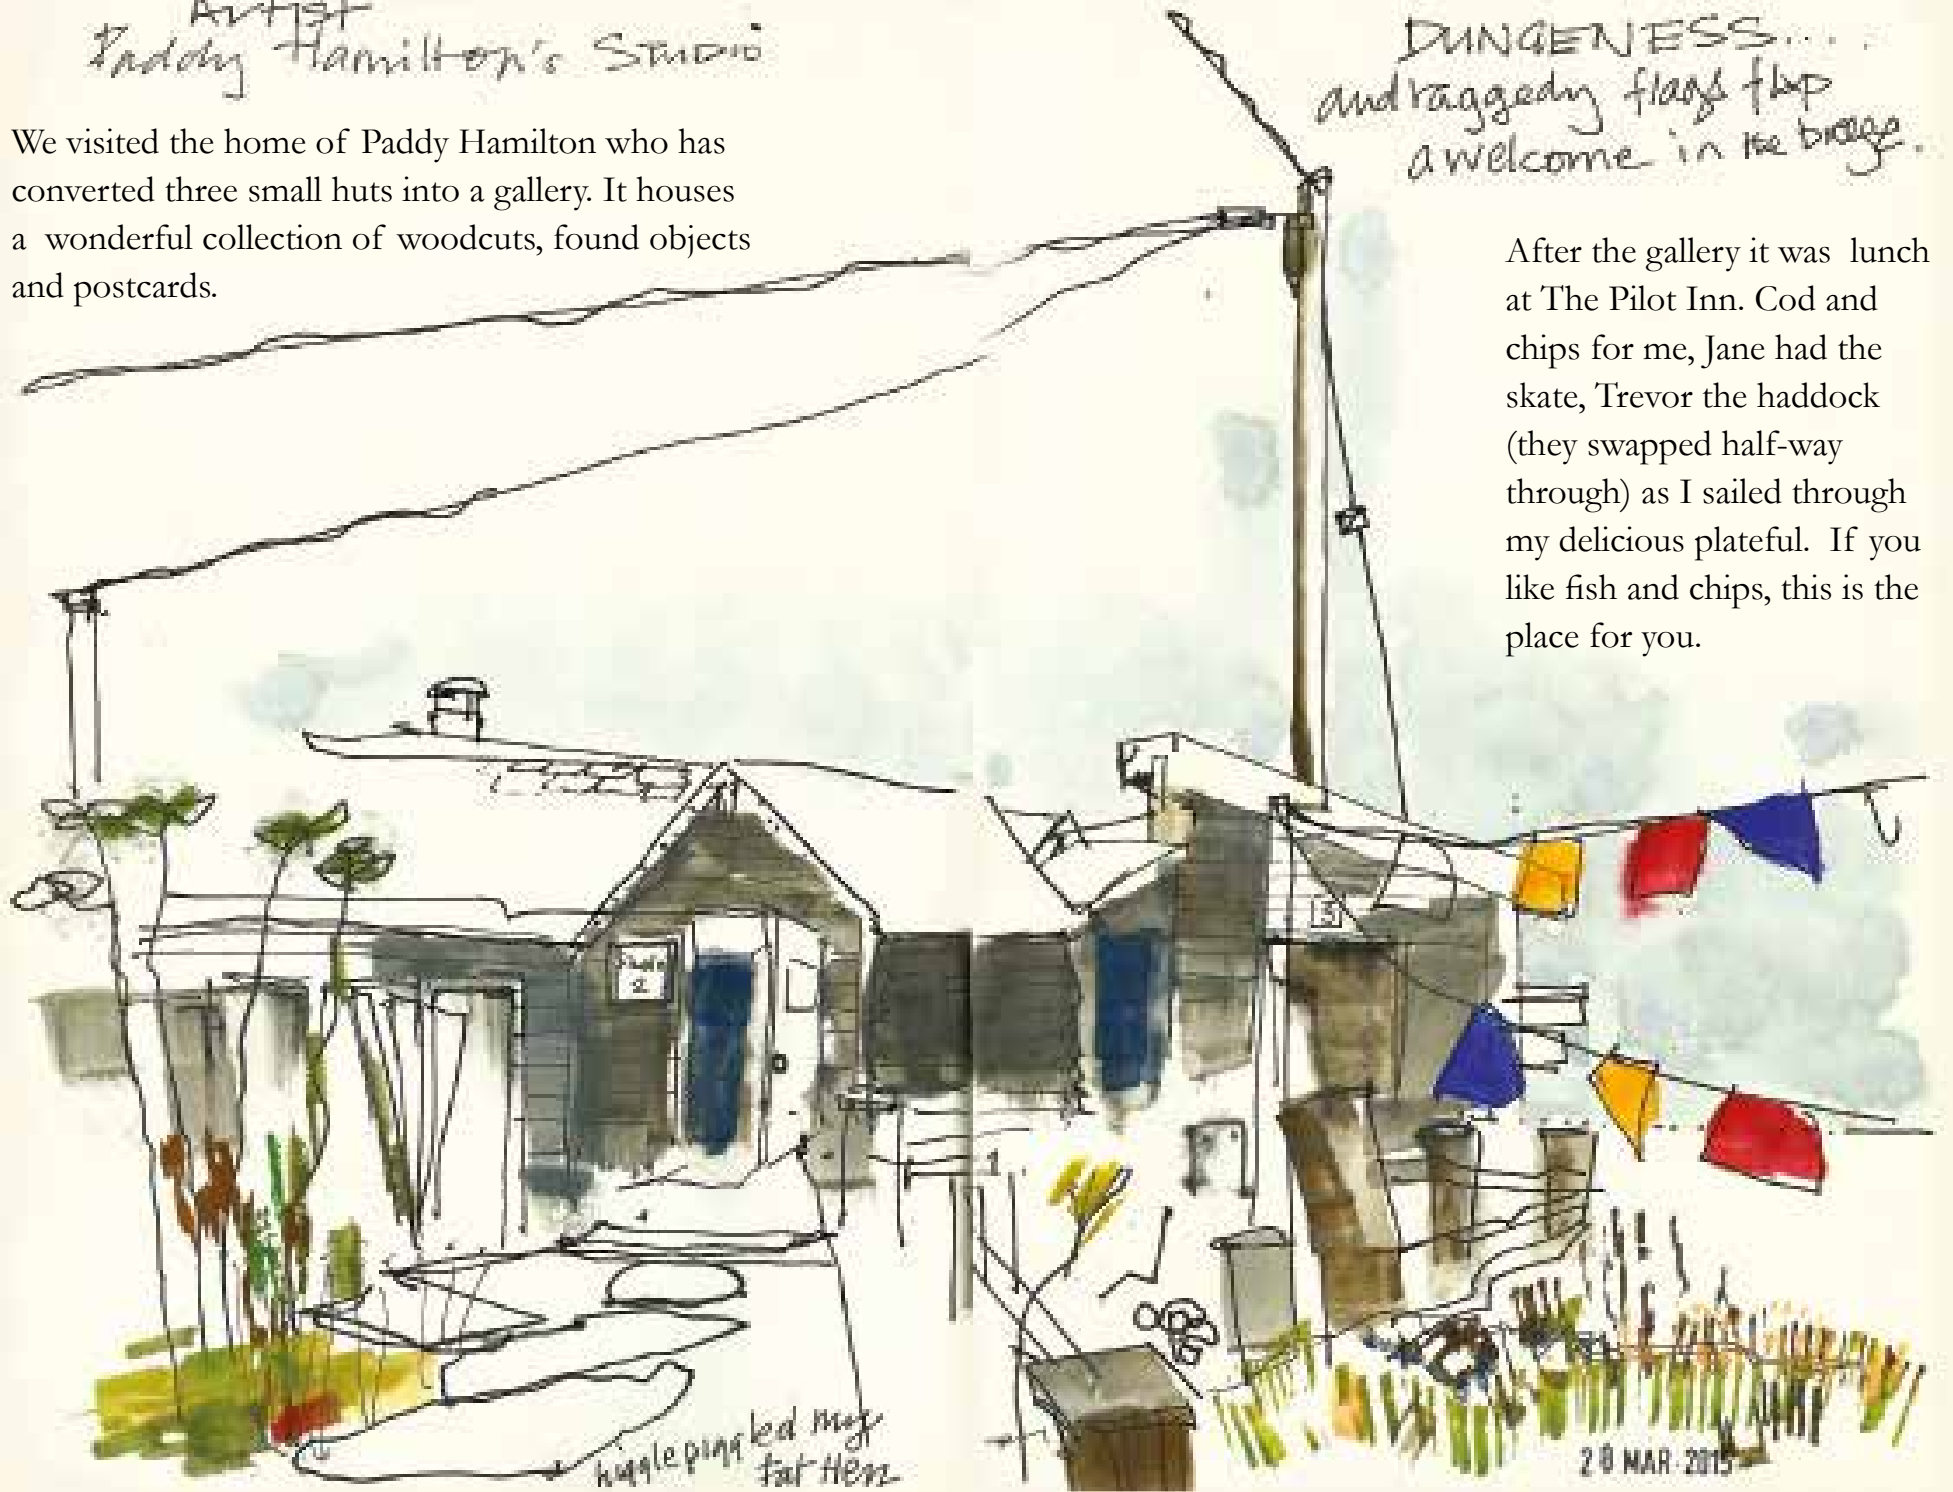 Artist
Paddy Hamilton's STUDIO
We visited the home of Paddy Hamilton who has
converted three small huts into a gallery. It houses
a wonderful collection of woodcuts, found objects
and postcards.
DUNGENESS....
and raggedy flags flap
a welcome in the breeze.
After the gallery it was lunch
at The Pilot Inn. Cod and
chips for me, Jane had the
skate, Trevor the haddock
(they swapped half-way
through) as I sailed through
my delicious plateful. If you
like fish and chips, this is the
place for you.
3
Studio
2
higglepiggled my
fat Hen
28 MAR 2015